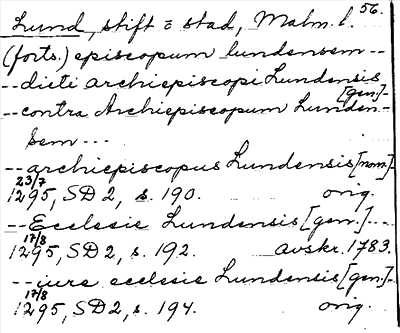 Lund, stift o stad, Malm. l. 56.
(forts.) episcopum lundensem --
-- dicti archiepiscopi Lundensis [gen.] --
-- contra Archiepiscopum Lunden-
sem ---
-- archiepiscopus Lundensis [nom.] --
23/7 1295, SD 2, s. 190. orig.
-- Ecclesie Lundensis [gen.] --
17/8 1295, SD 2, s. 192. avskr. 1783.
-- iure ecclesie Lundensis [gen.] --
17/8 1295, SD 2, s. 194. orig.